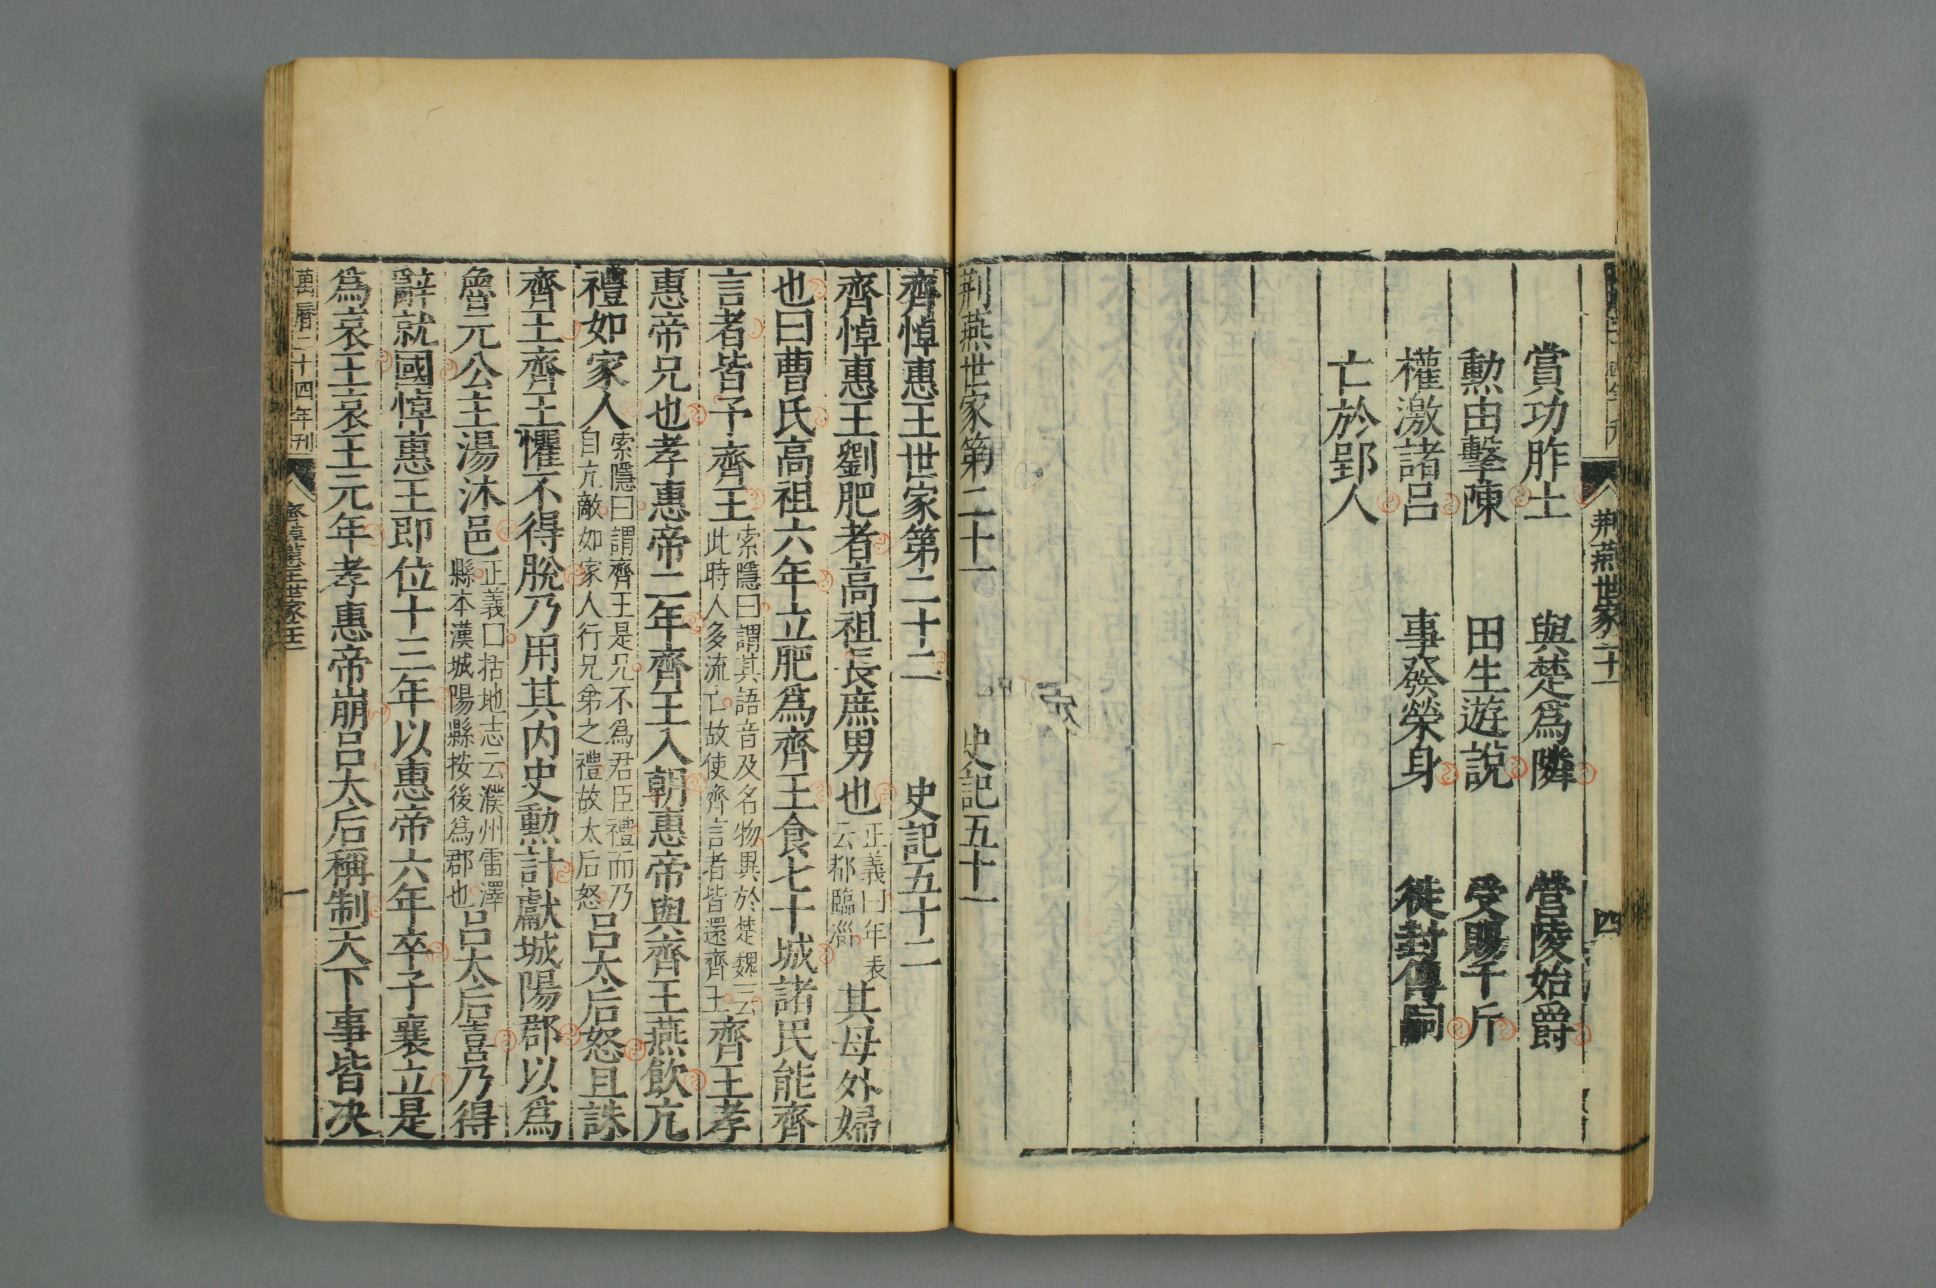 荆燕世家二十一
四
賞功胙土 與楚爲隣 營陵始爵
勲由擊陳 田生遊說 受賜千斤
權激諸呂 事發榮身 徙封傳嗣
亡於郢人
荆燕世家第二十一 史記五十一
齊悼惠王世家第二十二 史記五十二
齊悼惠王劉肥者高祖長庶男也正義曰年表云都臨淄其母外婦
也曰曹氏高祖六年立肥爲齊王食七十城諸民能齊
言者皆予齊王索隱曰謂其語音及名物異於楚魏云此時人多流亡故使齊言者皆還齊王齊王孝
惠帝兄也孝惠帝二年齊王入朝惠帝與齊王燕飮亢
禮如家人索隱曰謂齊王是兄不爲君臣禮而乃自亢敵如家人行兄弟之禮故太后怒呂太后怒且誅
齊王齊王懼不得脫乃用其内史勲計獻城陽郡以爲
魯元公主湯沐邑正義曰括地志云濮州雷澤縣本漢城陽縣按後爲郡也呂太后喜乃得
辭就國悼惠王即位十三年以惠帝六年卒子襄立是
爲哀王哀王元年孝惠帝崩呂太后稱制天下事皆决
萬曆二十四年刊
齊悼惠王世家二十二
一